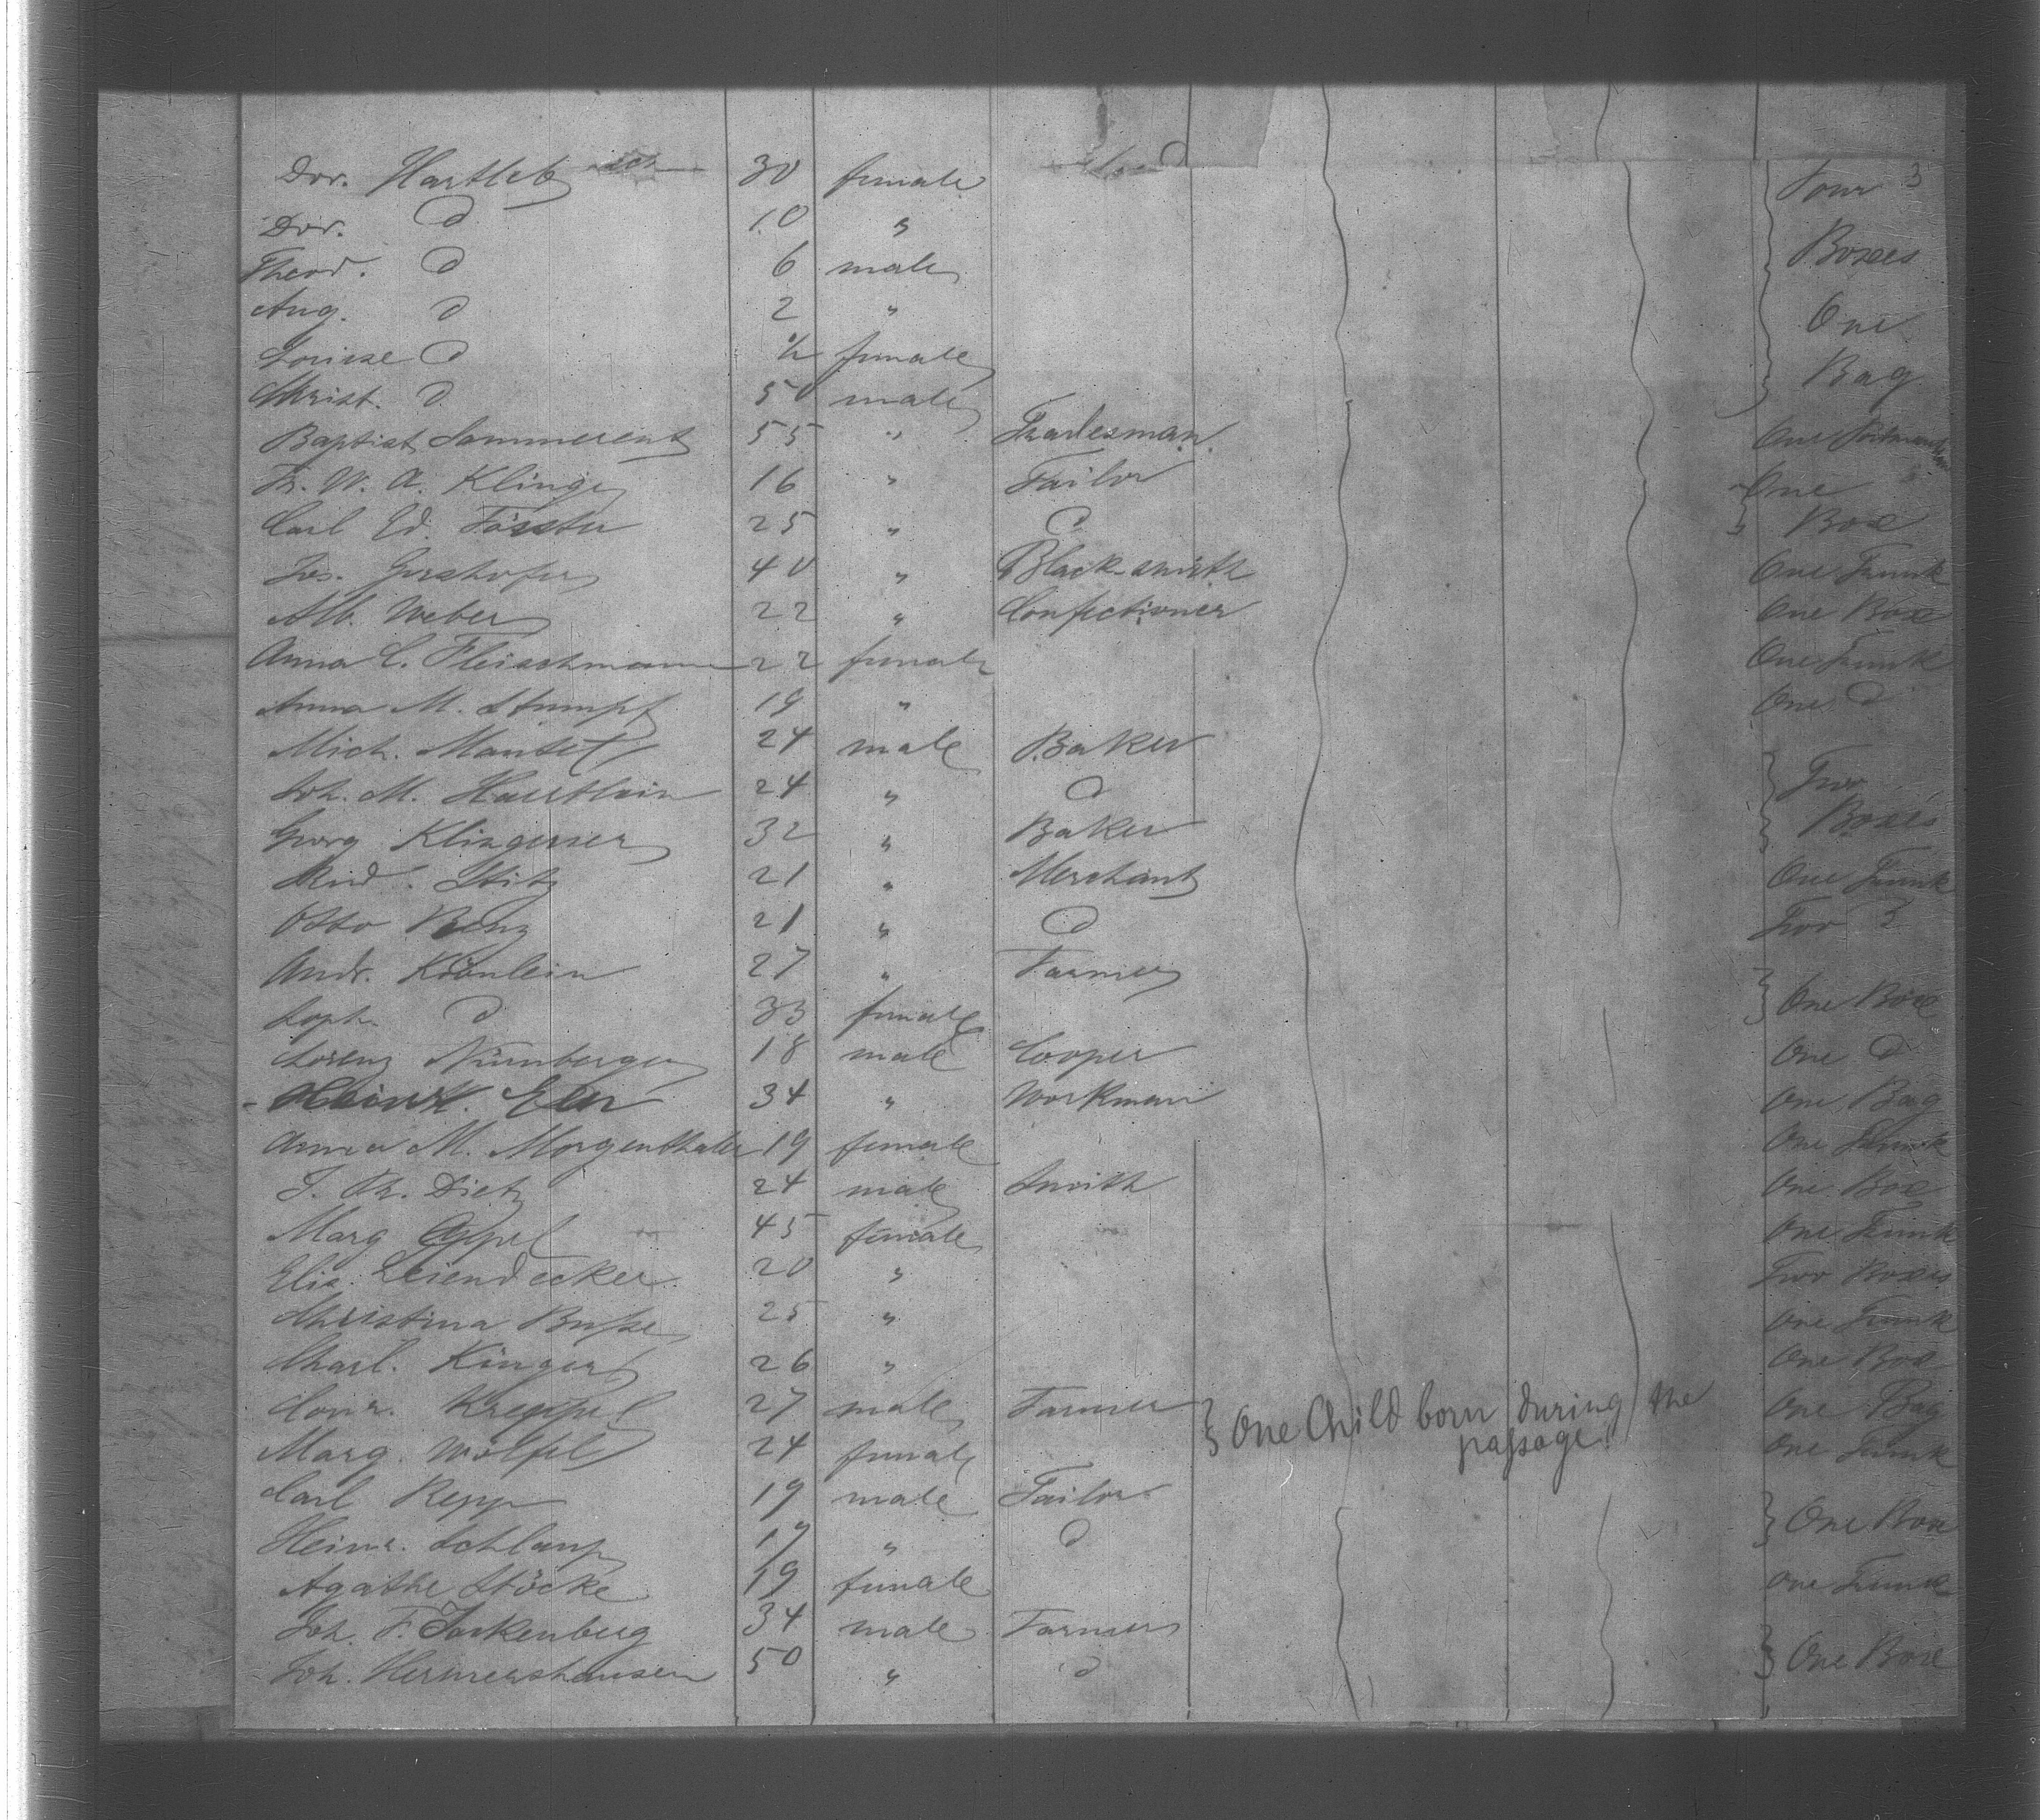 Dor. Hartleb 30 female Four 3
Dor. d 10 "
Theod. d 6 male Boxes
Aug. d 2 " One
Louise d ½ female Bag
Christ. d 50 male
Baptist 55 " Tradesman One
Fr. W. A. Klinge 16 " Tailor One
Carl Ed. Förster 25 " d Box
Jos. 40 " Blacksmith One Trunk
Alb. Weber 22 " Confectioner One Box
Anna C. Fleischmann 22 female One Trunk
Anna M. Stumpf 19 " One d
Mich. Mantel 24 male Baker Two
Joh. M. 24 " d
Georg Klingerer 32 " Baker Boxes
Rud. Stitz 21 " Merchant One Trunk
Otto Benz 21 " d Two
Andr. Krönlein 27 " Farmer
Soph. d 33 female One Box
Lorenz Nürnberger 18 male Cooper One d
34 " Workman One Bag
Anna M. Morgenthaler 19 female One Trunk
J. Ph. Dietz 24 male Smith One Box
Marg Appel 45 female One Trunk
Elis. Leiendecker 20 " Two Boxes
Christina 25 " One Trunk
Charl. 26 " One Box
Conr. Kreppel 27 male Farmer One Child born during the One Bag
passage!
Marg. Wölfel 24 female One Trunk
Carl Repp 19 male Tailor
Heinr. Schlaup 17 " d One Box
Agathe Stöcke 19 female One Trunk
Joh. F. 34 male Farmer
Joh. Hermershausen 50 " d One Box